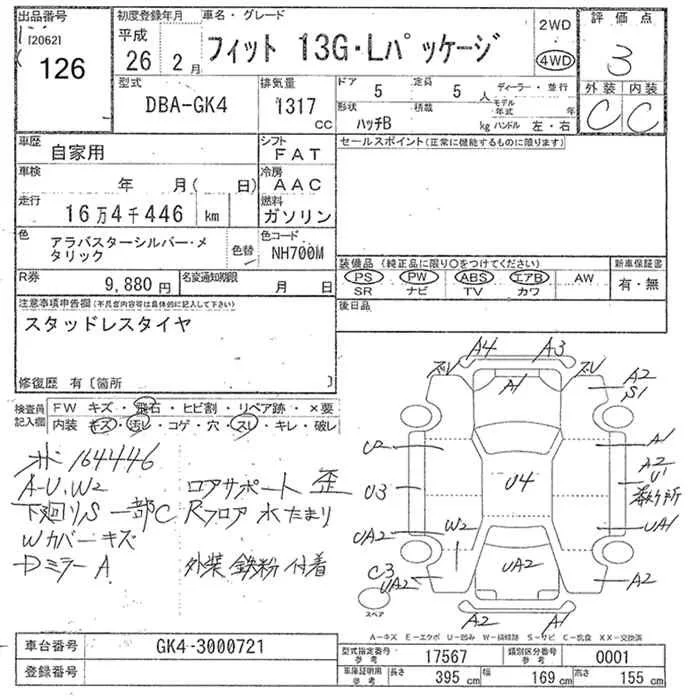 出品番号 初度登録年月 車名・グレード 2WD 評価点
[2062] 126 平成 26 2月 フィット 13G・Lパッケージ 4WD 3
型式 DBA-GK4 排気量 1317 CC ドア 5 定員 5人 ディーラー・並行 外装 内装
形状 ハッチB 積載 kg モデル年式 年 ハンドル 左・右 C C
車歴 自家用 シフト FAT セールスポイント(正常に機能するものに限ります)
車検 年 月( 日) 冷房 AAC
走行 16万4千446 km 燃料 ガソリン
色 アラバスターシルバー・メタリック 色替 色コード NH700M 装備品(純正品に限り○をつけてください) 新車保証書
R券 9,880円 名変通知期限 月 日 PS PW ABS エアB AW 有・無
SR ナビ TV カワ
注意事項申告欄(不具合内容は具体的に記入して下さい) 後日品
スタッドレスタイヤ
修復歴 有〔箇所 〕
検査員記入欄 FW キズ・飛石・ヒビ割・リペア跡・×要
内装 キズ・汚レ・コゲ・穴・スレ・キレ・破レ
164446
A-U、W2 ロアサポート 歪
下廻りS 一部C Rフロア 水たまり
Wカバーキズ
Dミラー A 外装 鉄粉 付着
A4 A3
ズU A1 ズU A2 S1
U2 A1
U3 U4 A2 U1
UA2 W2 UA1
C3 UA2 UA2 A2
A2 A1
スペア
A-キズ E-エクボ U-凹み W-補修跡 S-サビ C-腐食 XX-交換済
車台番号 GK4-3000721 型式指定番号 参考 17567 類別区分番号 参考 0001
登録番号 車庫証明用 参考 長さ 395 cm 幅 169 cm 高さ 155 cm